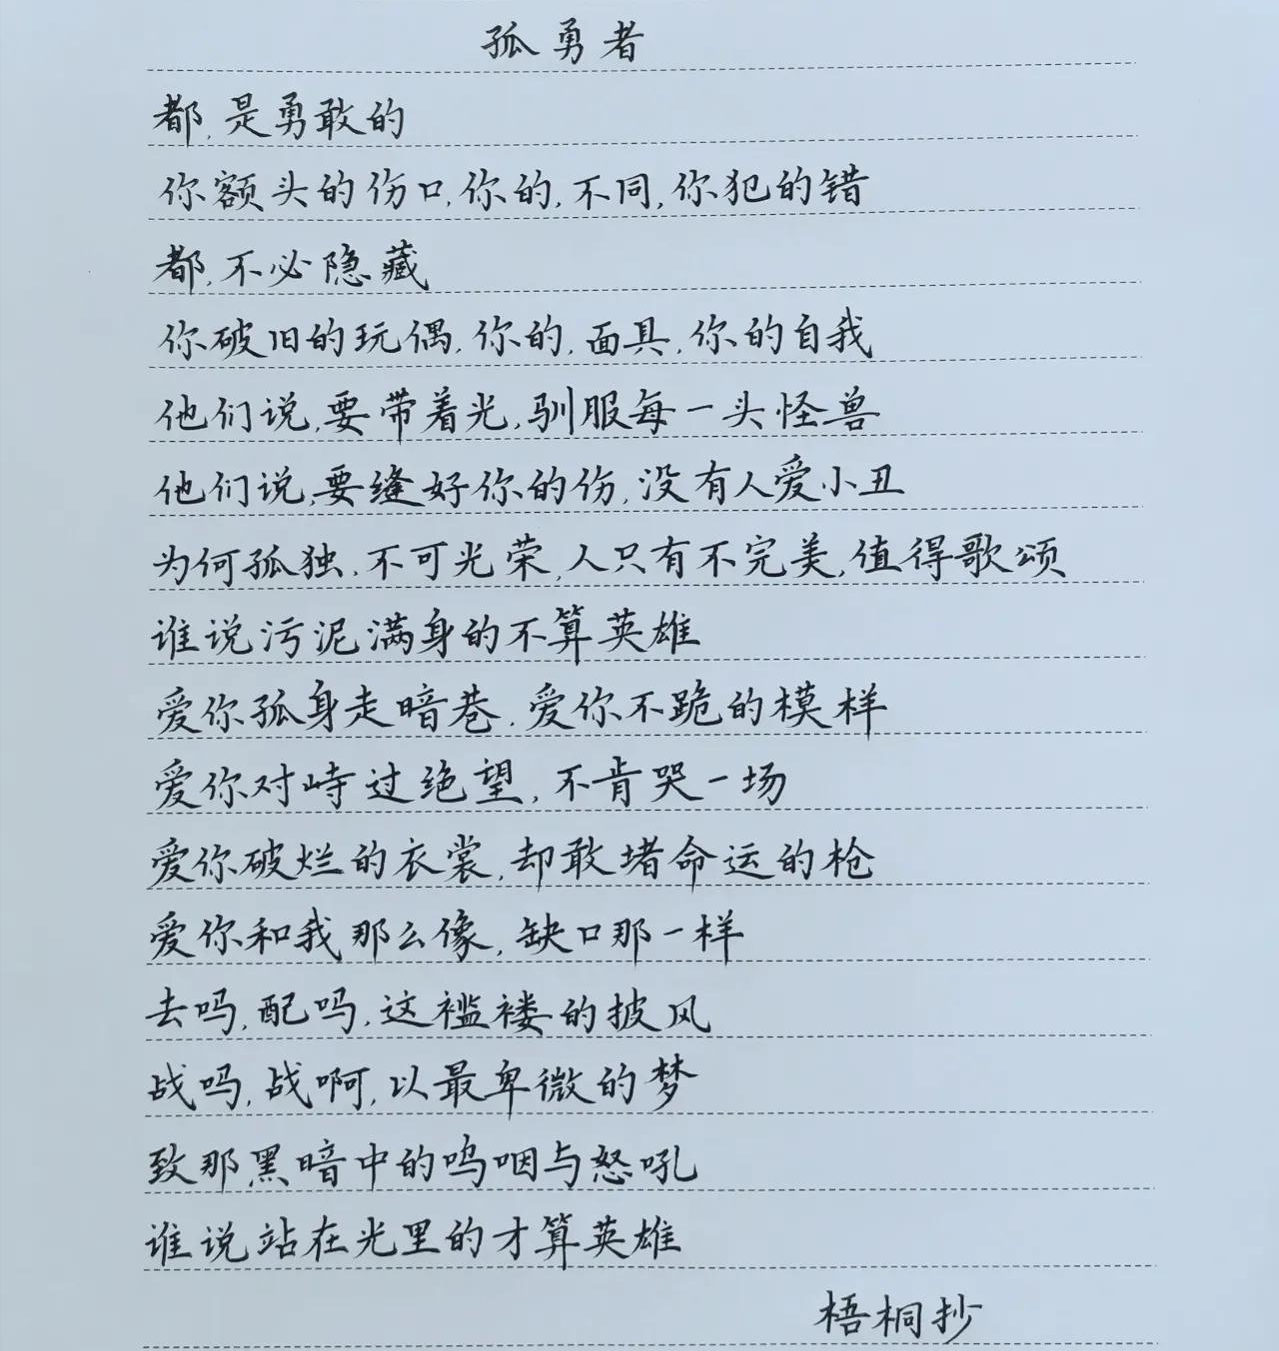 孤勇者
都,是勇敢的
你额头的伤口,你的,不同,你犯的错
都,不必隐藏
你破旧的玩偶,你的,面具,你的自我
他们说,要带着光,驯服每一头怪兽
他们说,要缝好你的伤,没有人爱小丑
为何孤独,不可光荣,人只有不完美,值得歌颂
谁说污泥满身的不算英雄
爱你孤身走暗巷,爱你不跪的模样
爱你对峙过绝望,不肯哭一场
爱你破烂的衣裳,却敢堵命运的枪
爱你和我那么像,缺口那一样
去吗,配吗,这褴褛的披风
战吗,战啊,以最卑微的梦
致那黑暗中的呜咽与怒吼
谁说站在光里的才算英雄
梧桐抄